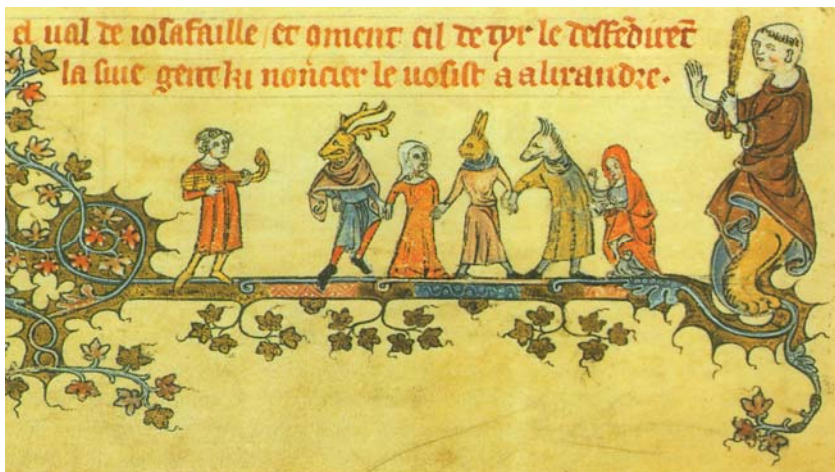 el ual de iosafaille / et qment cil de tyr le deffēdirēt
la siue gent ki noncier le uosist a alixandre.